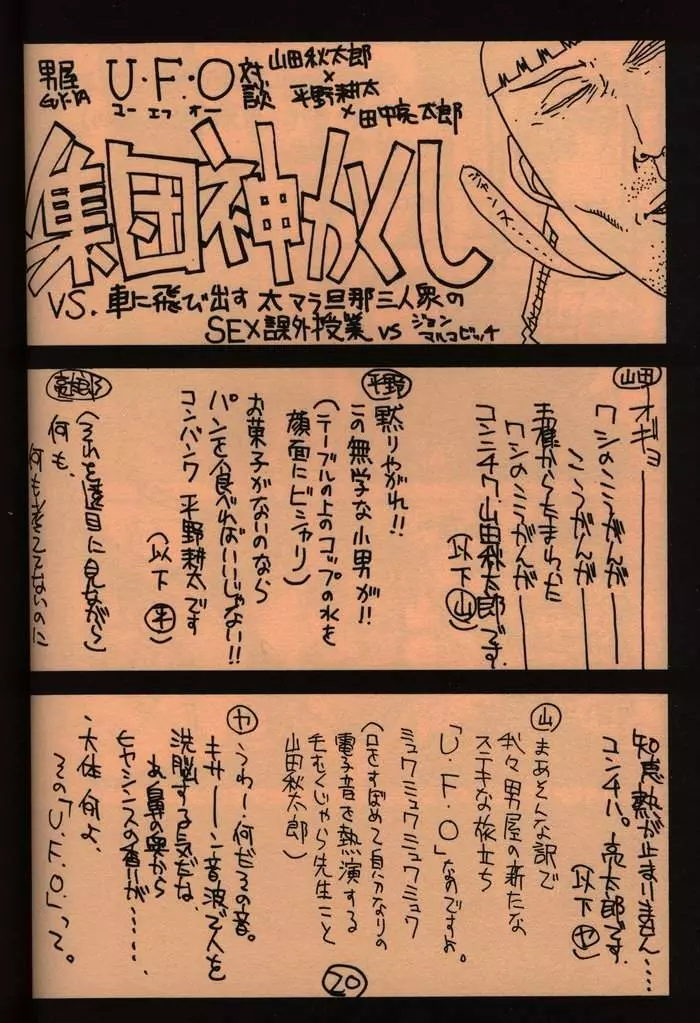 男屋
GUY-YA
U・F・O
ユー エフ オー
対談
山田秋太郎
×
平野耕太
×田中亮太郎
集団神かくし
VS. 車に飛び出す 太マラ旦那三人衆の
SEX課外授業 VS ジョン
マルコビッチ
山田
オギョ――
ワシのこうがんが――
こうがんが――
王様からたまわった
ワシのこうがんが――
コンニチワ、山田秋太郎です。
(以下 山)
平野
黙りやがれ!!
この無学な小男が!!
(テーブルの上のコップの水を
顔面にビシャリ)
お菓子がないのなら
パンを食べればいいじゃない!!
コンバンワ 平野耕太です
(以下 平)
亮太郎
(それを遠目に見ながら)
何も、
何も考えてないのに
知恵熱が止まりません‥‥
コンチハ。亮太郎です。
(以下 ヤ)
山
まあそんな訳で
我々男屋の新たな
ステキな旅立ち
「U・F・O」なのですよ。
ミュワミュワミュワミュワ
(口をすぼめて自分なりの
電子音を熱演する
毛むくじゃら先生こと
山田秋太郎)
ヤ
うわー、何だその音。
キサーン音波で人を
洗脳する気だな、
あ、鼻の奥から
ヒヤシンスの香りが‥‥‥
、大体何よ、
その「U・F・O」って。
20